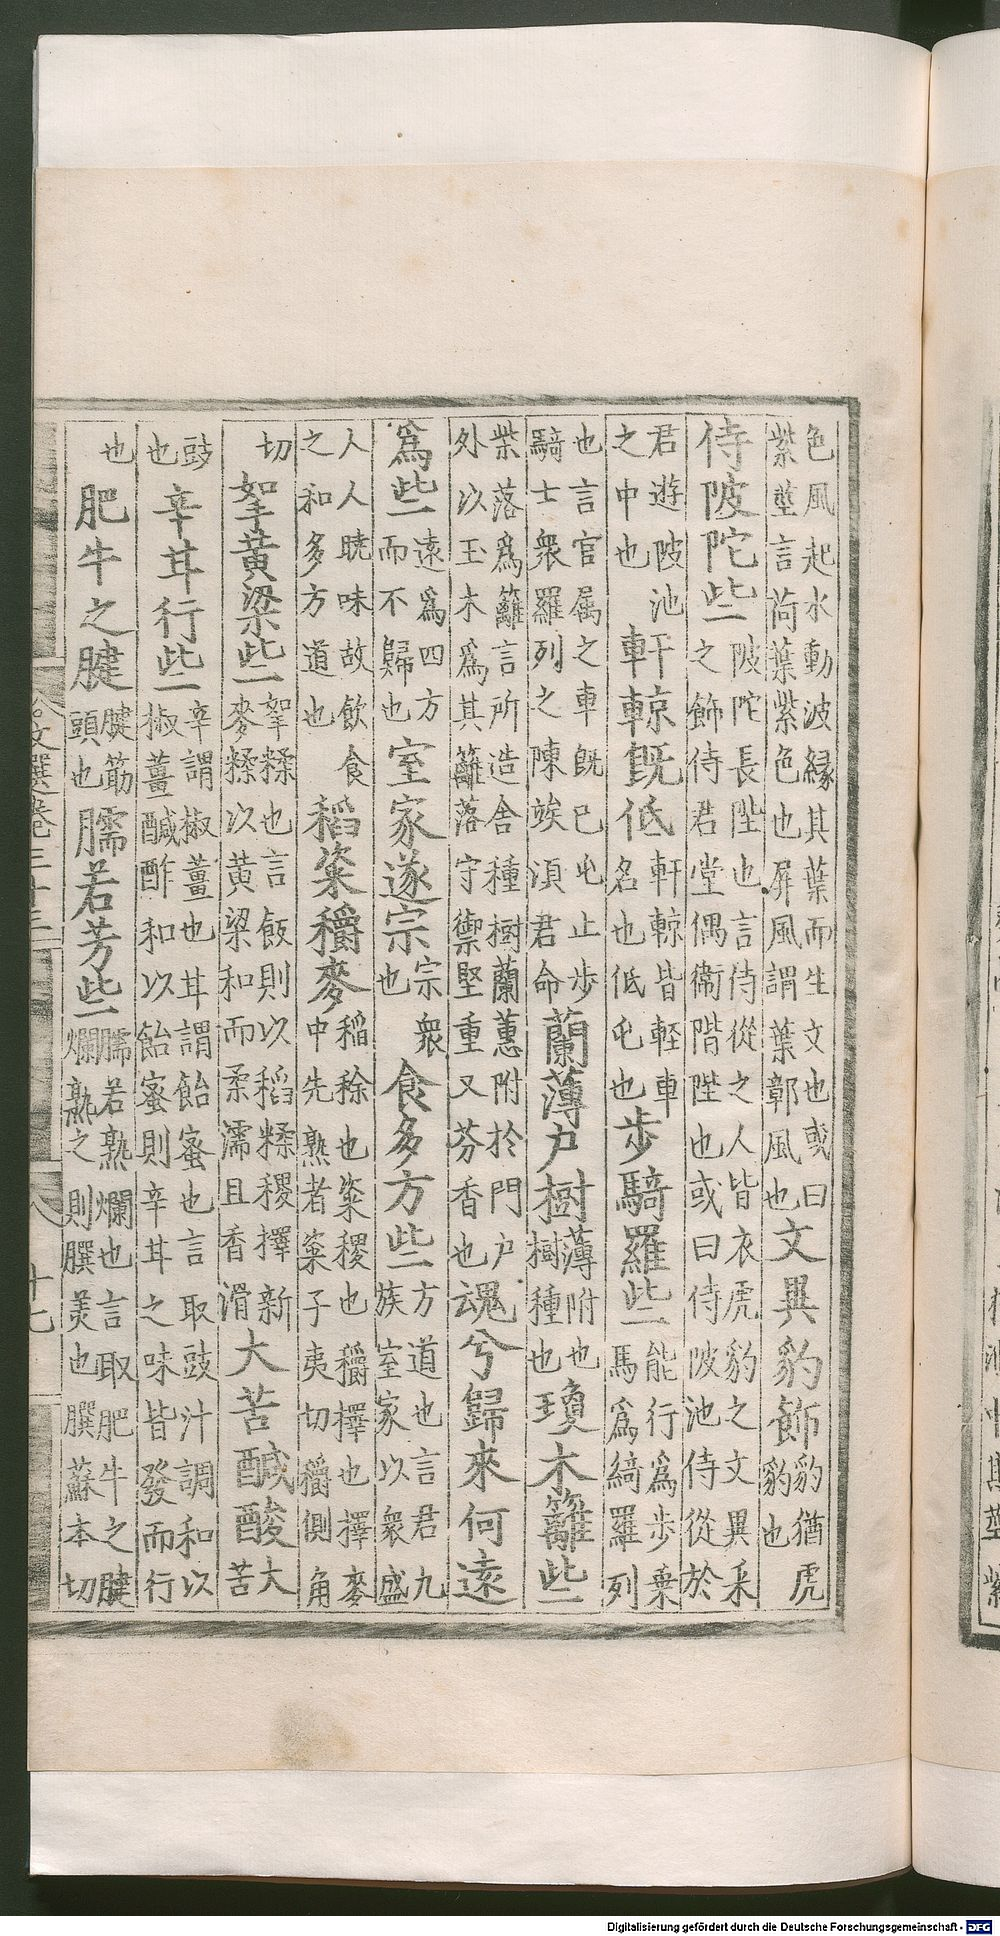 色風起水動波緣其葉而生文也或曰紫莖言荷葉紫色也屏風謂葉鄣風也文異豹飾豹猶虎豹也
侍陂陀些陂陀長陛也言侍從之人皆衣虎豹之文異采之飾侍君堂偶衞階陛也或曰侍陂池侍從於
君遊陂池之中也軒輬旣低軒輬皆輕車名也低屯也步騎羅些能行爲步乘馬爲綺羅列
也言官屬之車旣已屯止步騎士衆羅列之陳竢湏君命蘭薄户樹薄附也樹種也瓊木籬些
柴落爲籬言所造舍種樹蘭蕙附於門户外以玉木爲其籬落守禦堅重又芬香也魂兮歸來何遠
爲些遠爲四方而不歸也室家遂宗宗衆也食多方些方道也言君九族室家以衆盛
人人曉味故飲食之和多方道也稻粢穱麥稻稌也粢稷也穱擇也擇麥中先熟者粢子夷切穱側角
切挐黃粱些挐糅也言飯則以稻糅稷擇新麥糅以黃粱和而柔濡且香滑大苦醎酸大苦
豉也辛甘行些辛謂椒薑也甘謂飴蜜也言取豉汁調和以椒薑醎酢和以飴蜜則辛甘之味皆發而行
也肥牛之腱腱筋頭也臑若芳些臑若熟爛也言取肥牛之腱爛熟之則𦠆美也𦠆蘇本切
文選卷三十三 八 十七
Digitalisierung gefördert durch die Deutsche Forschungsgemeinschaft - DFG